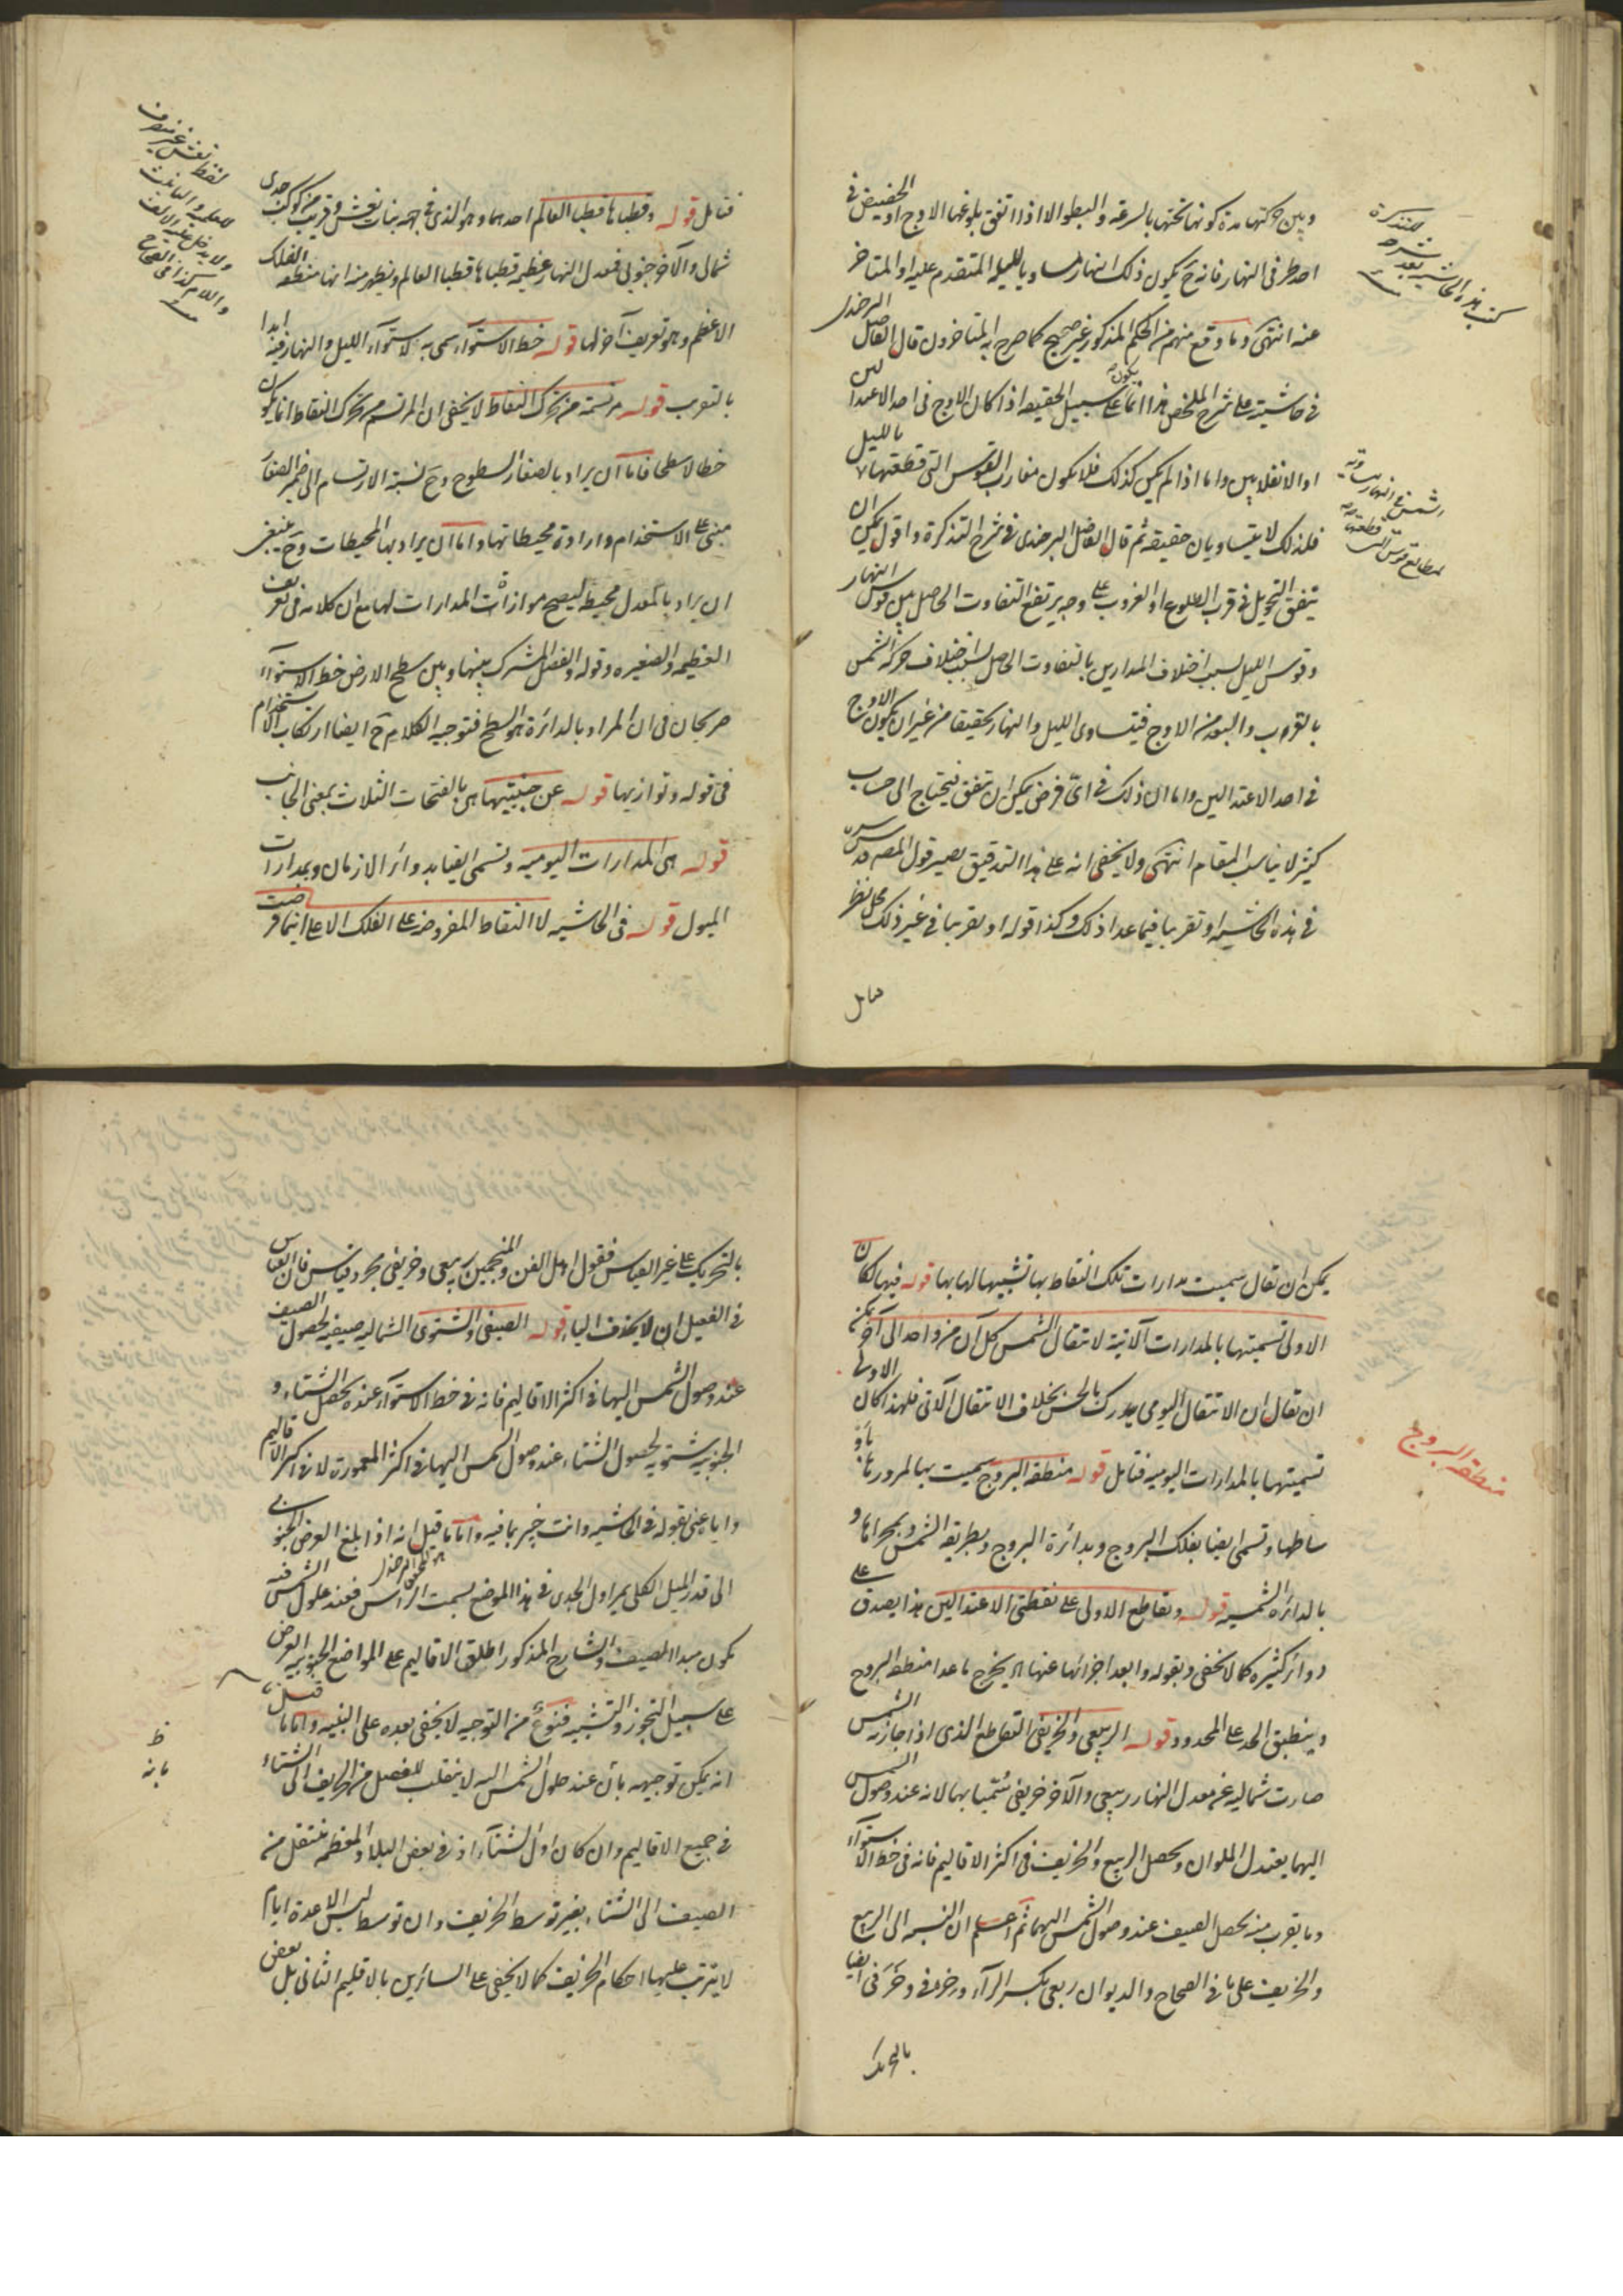 وبين حركتها مدة كونها تحتها بالسرعة والبطو الا اذا اتفق بلوغها الاوج او الحضيض في
احد طرفى النهار فانه ح يكون ذلك النهار مساويا لليله المتقدم عليه او المتاخر
عنه انتهى وما وقع منهم من الحكم المذكور غير صحيح كما صرح به المتاخرون قال الفاضل البرجندى
فى حاشيته على شرح الملخص هذا انما يكون على سبيل الحقيقه اذا كان الاوج فى احد الاعتدالين
او الانقلابين واما اذا لم يكن كذلك فلا يكون مغارب القوس التى قطعتها بالليل
فلذلك لا يتساويان حقيقه ثم قال الفاضل البرجندى فى شرح التذكرة واقول يمكن ان
يتفق التحويل فى قرب الطلوع او الغروب على وجه يرتفع التفاوت الحاصل بين قوس النهار
وقوس الليل بسبب اختلاف المدارين بالتفاوت الحاصل بسبب اختلاف حركة الشمس
بالقرب والبعد من الاوج فيتساوى الليل والنهار تحقيقا من غير ان يكون الاوج
فى احد الاعتدالين واما ان ذلك فى اى فرض يمكن ان يتفق فيحتاج الى حساب
كثير لا يناسب المقام انتهى ولا يخفى انه على هذا التدقيق يصير قول المصه قدس سره
فى هذه الحاشيه او تقريبا فيما عدا ذلك وكذا قوله او تقريبا فى غير ذلك محل نظر
فتامل
للتذكرة
كتب هذه الحاشيه بعد شرحه
الشمس فى النهار مساويه
لمطالع قوس قطعتها
فتامل قوله وقطباها قطبا العالم احدهما وهو الذى فى جهه بنات نعش وقريب من كوكب جدى
شمالى والآخر جنوبى فمعدل النهار عظيمه قطباها قطبا العالم ويظهر منه انها منطقه الفلك
الاعظم وهو تعريف آخر لها قوله خط الاستوآء سمى به لاستوآء الليل والنهار فيه ابدا
بالتقريب قوله مرتسمة من تحرك النقاط لا يخفى ان المرتسم من تحرك النقاط انما يكون
خطا لا سطحا فاما ان يراد بالصغار السطوح وح نسبة الارتسام الى ضمير الصغار
مبنى على الاستخدام وارادة محيطاتها واما ان يراد بها المحيطات وح ينبغى
ان يراد بالمعدل محيطه ليصح موازاة المدارات لها مع ان كلامه فى تعريف
العظيمه والصغيره وقوله والفصل المشترك بينها وبين سطح الارض خط الاستوآء
صريحان فى ان المراد بالدائرة هو السطح فتوجيه الكلام ح ايضا ارتكاب الاستخدام
فى قوله وتوازيها قوله عن جنبتيها هى بالفتحات الثلاث بمعنى الجانب
قوله هى المدارات اليوميه وتسمى ايضا بدوائر الازمان وبمدارات
الميول قوله فى الحاشيه لا النقاط المفروضه على الفلك الاعلى انما فرضت
لفظ نعش غير منصرف
للعلميه والتانيث
ولا يدخل عليه الالف
واللام كذا فى الصحاح
يمكن ان يقال سميت مدارات تلك النقاط بها تشبيها لها بها قوله فيها لكان
الاولى تسميتها بالمدارات الآنية لانتقال الشمس كل آن من واحد الى آخر يمكن
ان يقال ان الانتقال اليومى يدرك بالحس بخلاف الانتقال الآنى فلهذا كان الاولى
تسميتها بالمدارات اليوميه فتامل قوله منطقه البروج سميت بها لمرورها باو
ساطها وتسمى ايضا بفلك البروج وبدائرة البروج وبطريقه الشمس وبمجراها و
بالدائره الشمسيه قوله وتقاطع الاولى على نقطتى الاعتدالين هذا يصدق على
دوائر كثيره كما لا يخفى وبقوله وابعد اجزائها عنها اه يخرج ما عدا منطقه البروج
وينطبق الحد على المحدود قوله الربيعى والخريفى التقاطع الذى اذا جازته الشمس
صارت شماليه عن معدل النهار ربيعى والآخر خريفى سُمّيا بهما لانه عند وصول الشمس
اليهما يعتدل الملوان ويحصل الربيع والخريف فى اكثر الاقاليم فانه فى خط الاستوآء
وما يقرب منه يحصل الصيف عند وصول الشمس اليهما ثم اعلم ان النسبه الى الربيع
والخريف على ما فى الصحاح والديوان ربعى بكسر الرآء وخرفى وخَرَفى ايضا
بالتحريك
منطقه البروج
بالتحريك على غير القياس فقول اهل الفن والمنجمين ربيعى وخريفى مجرد قياس فان القياس
فى الفعيل ان لا يحذف الياء قوله الصيفى والشتوى الشماليه صيفيه لحصول الصيف
عند وصول الشمس اليها فى اكثر الاقاليم فانه فى خط الاستوآء عنده يحصل الشتاء و
الجنوبيه شتويه لحصول الشتاء عند وصول الشمس اليها فى اكثر المعمورة لا فى اكثر الاقاليم
واياه عنى بقوله فى الحاشيه وانت خبير بما فيه واما ما قيل انه اذا بلغ العرض الجنوبى
الى قدر الميل الكلى يمر اول الجدى فى هذا الموضع بسمت الراس فعند حلول الشمس فيه
يكون مبدا الصيف والشارح المذكور اطلق الاقاليم على المواضع الجنوبيه العرض
على سبيل التجوز والتشبيه فنوعٌ من التوجيه لا يخفى بعده على النبيه واما ما قيل
انه يمكن توجيهه بان عند حلول الشمس اليه لا ينقلب الفصل من الخريف الى الشتاء
فى جميع الاقاليم وان كان اول الشتآء اذ فى بعض البلاد المعظمه ينتقل من
الصيف الى الشتاء بغير توسط الخريف وان توسط ليس الا عدة ايام
لا يترتب عليها احكام الخريف كما لا يخفى على السائرين بالاقليم الثانى بل بعض